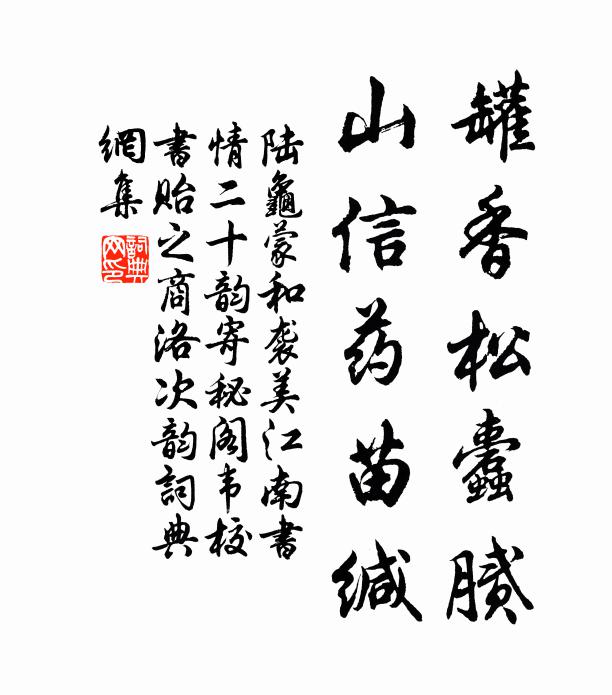 罐香松蠹腻
山信药苗缄
陆龜蒙和袭美江南書
情二十韵寄秘阁韦校
書贻之商洛次韵詞典
網集
詞典
网印